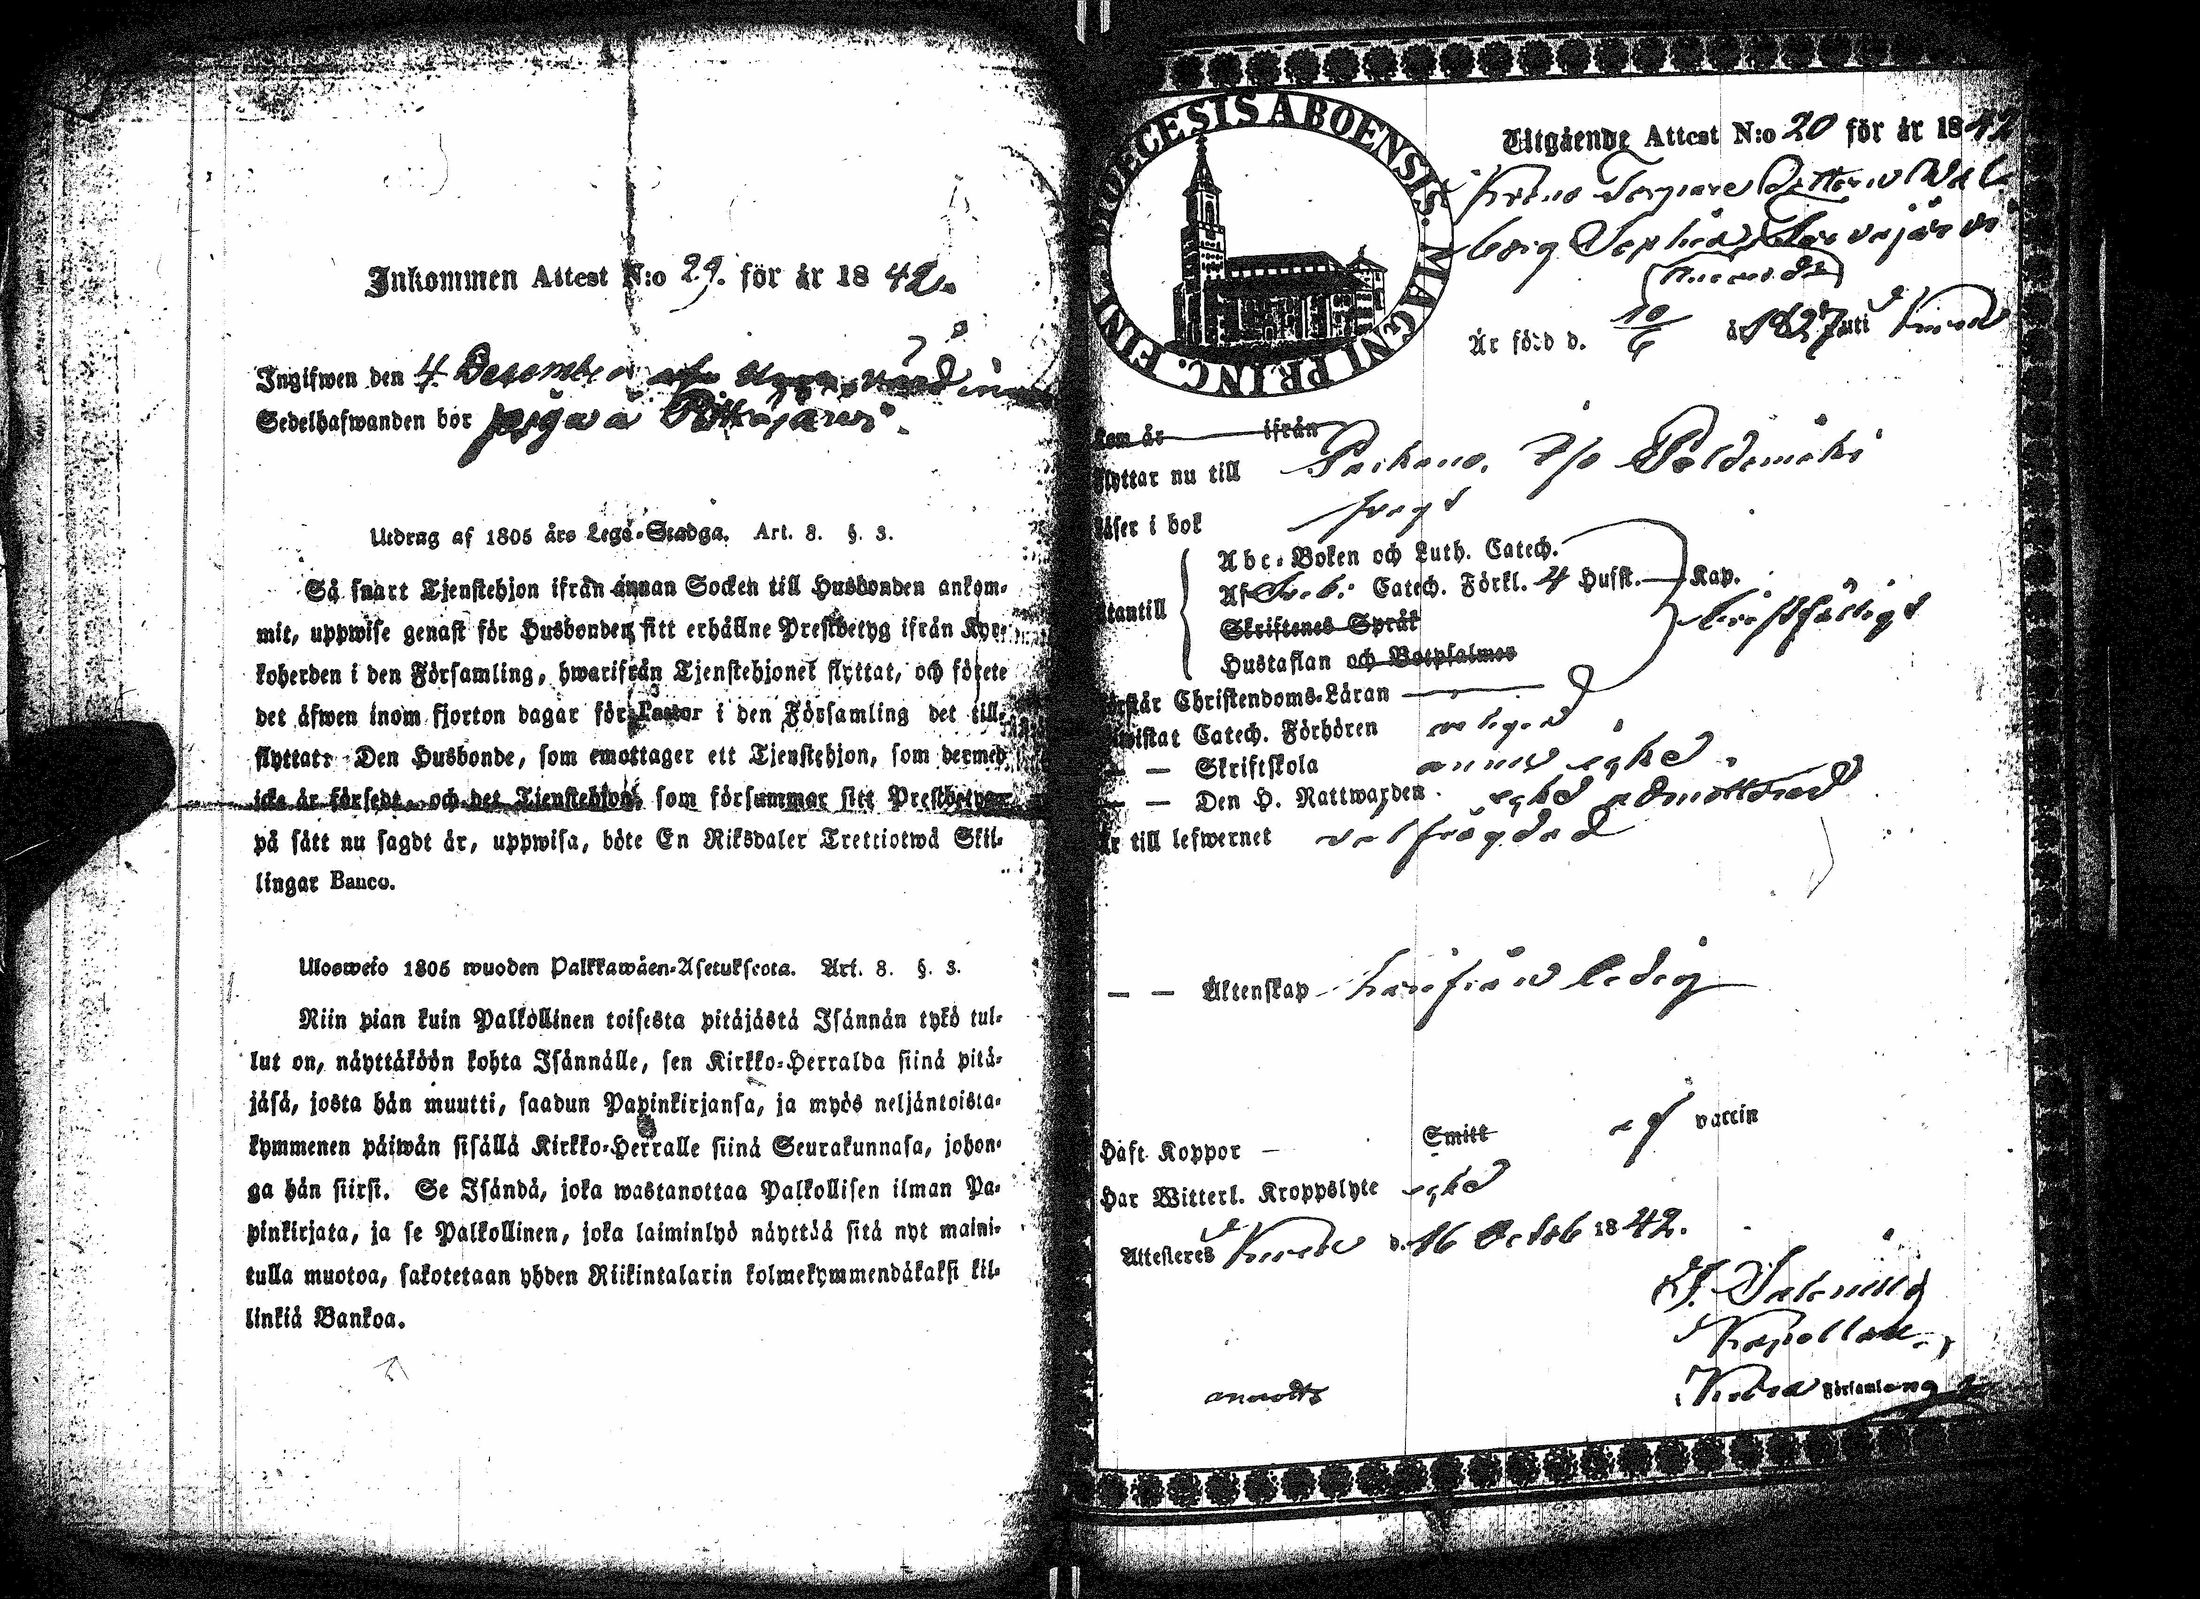 Inkommen Attest N:o 29. för år 1842.
Ingifwen den 4 Decemb
Sedelhafwanden bor piga å
Utdrag af 1805 års Lego-Stadga. Art. 8. §. 3.
Så snart Tjenstehjon ifrån annan Socken till Husbonden ankom-
mit, uppwise genast för Husbonden sitt erhållne Prestbetyg ifrån Kyr-
koherden i den Församling, hwarifrån Tjenstehjonet flyttat, och förete
det äfwen inom fjorton dagar för Pastor i den Församling det till-
flyttat: Den Husbonde, som emottager ett Tjenstehjon, som dermed
icke är försedt, och det Tjenstehjon, som försummar sitt Prestbetyg
på sätt nu sagdt är, uppwisa, böte En Riksdaler Trettiotwå Skil-
lingar Banco.
Ulosweto 1805 wuoden Palkkawäen-Asetuksesta. Art. 8. §. 3.
Niin pian kuin Palkollinen toisesta pitäjästä Isännän tykö tul-
lut on, näyttäköön kohta Isännälle, sen Kirkko-Herralda siinä pitä-
jäsä, josta hän muutti, saadun Papinkirjansa, ja myös neljäntoista-
kymmenen päiwän sisällä Kirkko-Herralle siinä Seurakunnasa, johon-
ga hän siirsi. Se Isändä, joka wastanottaa Palkollisen ilman Pa-
pinkirjata, ja se Palkollinen, joka laiminlyö näyttää sitä nyt maini-
tulla muotoa, sakotetaan yhden Riikintalarin kolmekymmendäkaksi kil-
linkiä Bankoa.
DIOECESIS ABOENSIS. MAGNI PRINC. FINL.
Utgående Attest N:o 20 för år 1842
Krono Torpare Dottern Wal
borg Sophia
Är född d. 10/6 år 1827 uti
som år ifrån
flyttar nu till Parkano,
läser i bok
Abc-Boken och Luth. Catech.
utantill Af Catech. Förkl. 4 Husst. Kap.
Skriftenes Språk
Hustaflan och Botpsalmer
förstår Christendoms-Läran
bewistat Catech. Förhören
— — Skriftskola annu icke
— — Den H. Nattwarden icke admitterad
Är till lefwernet välfrägdad
— — Äktenskap härifrån ledig
Haft Koppor — Smitt af vaccin
Har Witterl. Kroppslyte icke
Attesteres d. 16 Octob 1842.
Kapellan
Församling